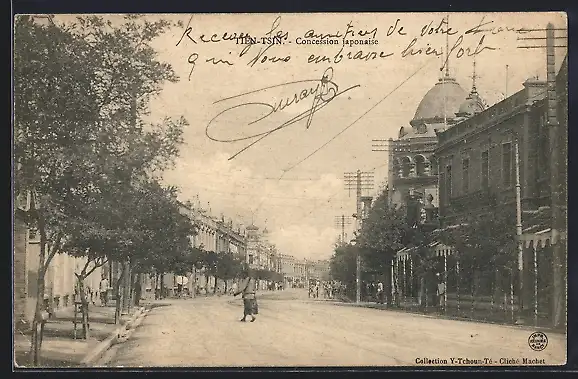 Recevez les amitiés de votre
TIEN-TSIN. - Concession japonaise
qui vous embrasse bien fort
Collection Y-Tchoun-Té - Cliché Machet